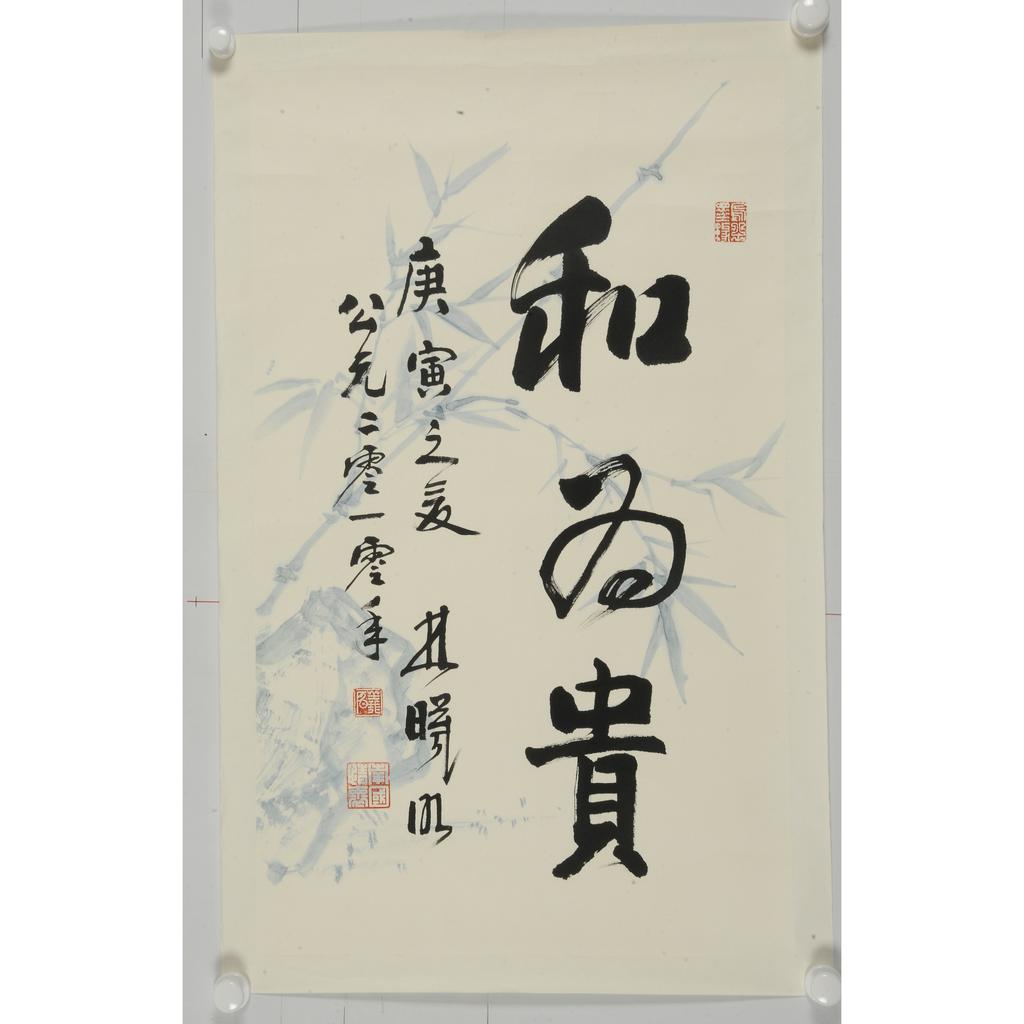 和為貴
庚寅之夏 林曦明
公元二零一零年